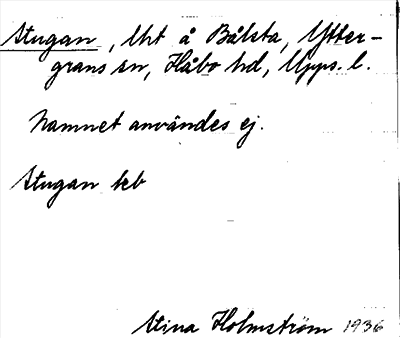 Stugan, lht å Bålsta, Ytter-
grans sn, Håbo hd, Upps. l.
Namnet användes ej.
Stugan kb
Stina Holmström 1936